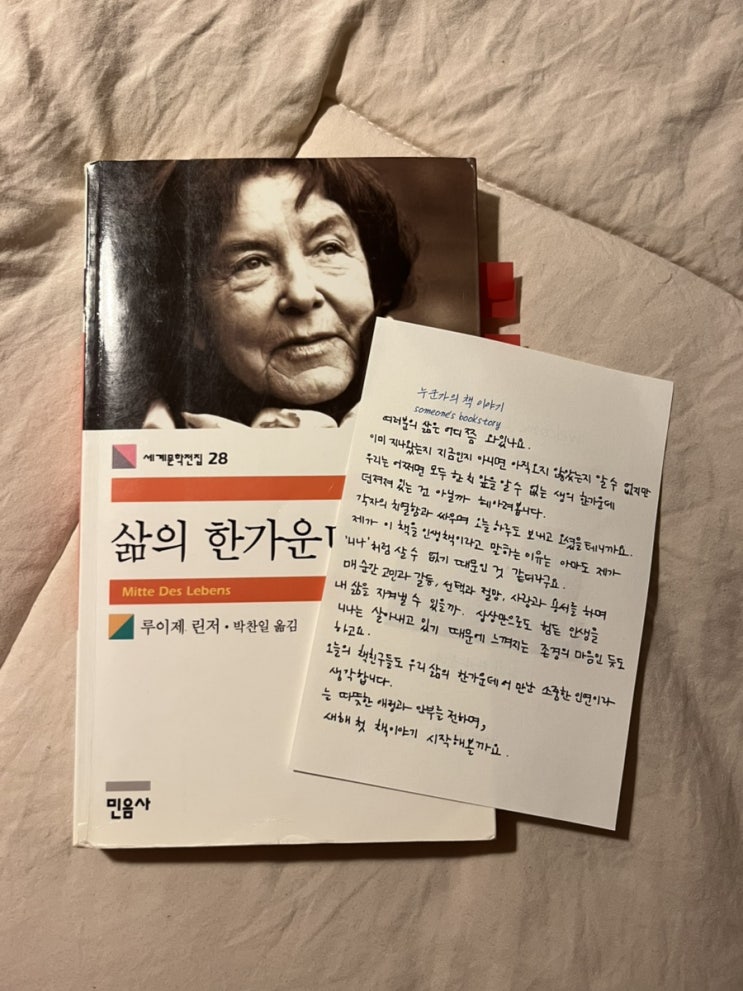 세계문학전집 28
삶의 한가운
Mitte Des Lebens
루이제 린저 · 박찬일 옮김
민음사
누군가의 책 이야기
someone's bookstory
여러분의 삶은 어디쯤 와있나요.
이미 지나왔는지 지금인지 아니면 아직오지 않았는지 알 수 없지만
우리는 어쩌면 모두 한 치 앞을 알 수 없는 생의 한가운데
던져져 있는 건 아닐까 헤아려봅니다.
각자의 치열함과 싸우며 오늘 하루도 보내고 오셨을테니까요.
제가 이 책을 인생책이라고 말하는 이유는 아마도 제가
'니나'처럼 살 수 없기 때문인 것 같더라구요.
매 순간 고민과 갈등, 선택과 절망, 사랑과 용서를 하며
내 삶을 지켜낼 수 있을까. 상상만으로도 힘든 인생을
니나는 살아내고 있기 때문에 느껴지는 존경의 마음인 듯도
하고요.
오늘의 책친구들도 우리 삶의 한가운데서 만난 소중한 인연이라
생각합니다.
늘 따뜻한 애정과 안부를 전하며,
새해 첫 책이야기 시작해볼까요.